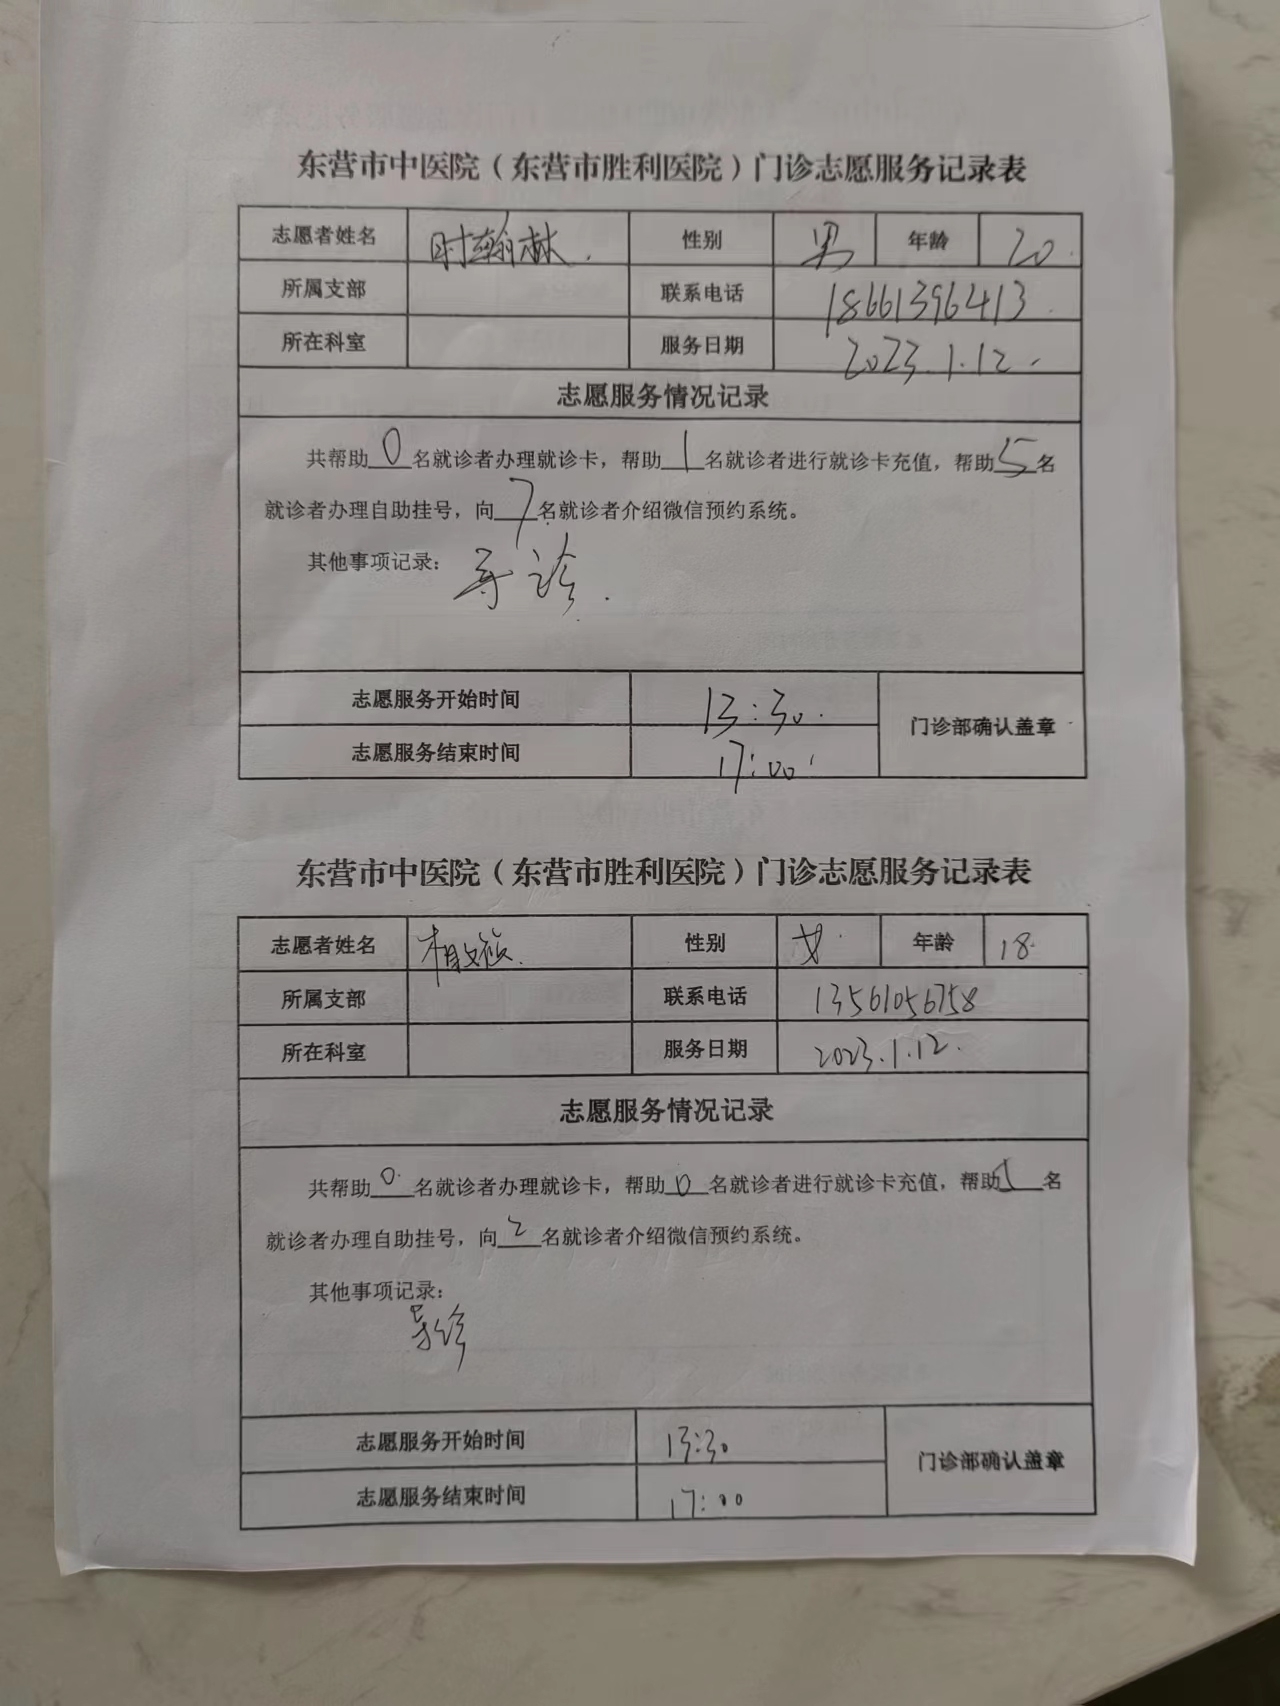 东营市中医院（东营市胜利医院）门诊志愿服务记录表
志愿者姓名 时瀚林. 性别 男 年龄 20.
所属支部 联系电话 18661396413.
所在科室 服务日期 2023.1.12.
志愿服务情况记录
共帮助0名就诊者办理就诊卡，帮助1名就诊者进行就诊卡充值，帮助5名
就诊者办理自助挂号，向7名就诊者介绍微信预约系统。
其他事项记录：导诊.
志愿服务开始时间 13:30.
门诊部确认盖章
志愿服务结束时间 17:00
东营市中医院（东营市胜利医院）门诊志愿服务记录表
志愿者姓名 相文 性别 女 年龄 18.
所属支部 联系电话 13561056758
所在科室 服务日期 2023.1.12.
志愿服务情况记录
共帮助0名就诊者办理就诊卡，帮助0名就诊者进行就诊卡充值，帮助1名
就诊者办理自助挂号，向2名就诊者介绍微信预约系统。
其他事项记录：
导诊
志愿服务开始时间 13:30
门诊部确认盖章
志愿服务结束时间 17:00